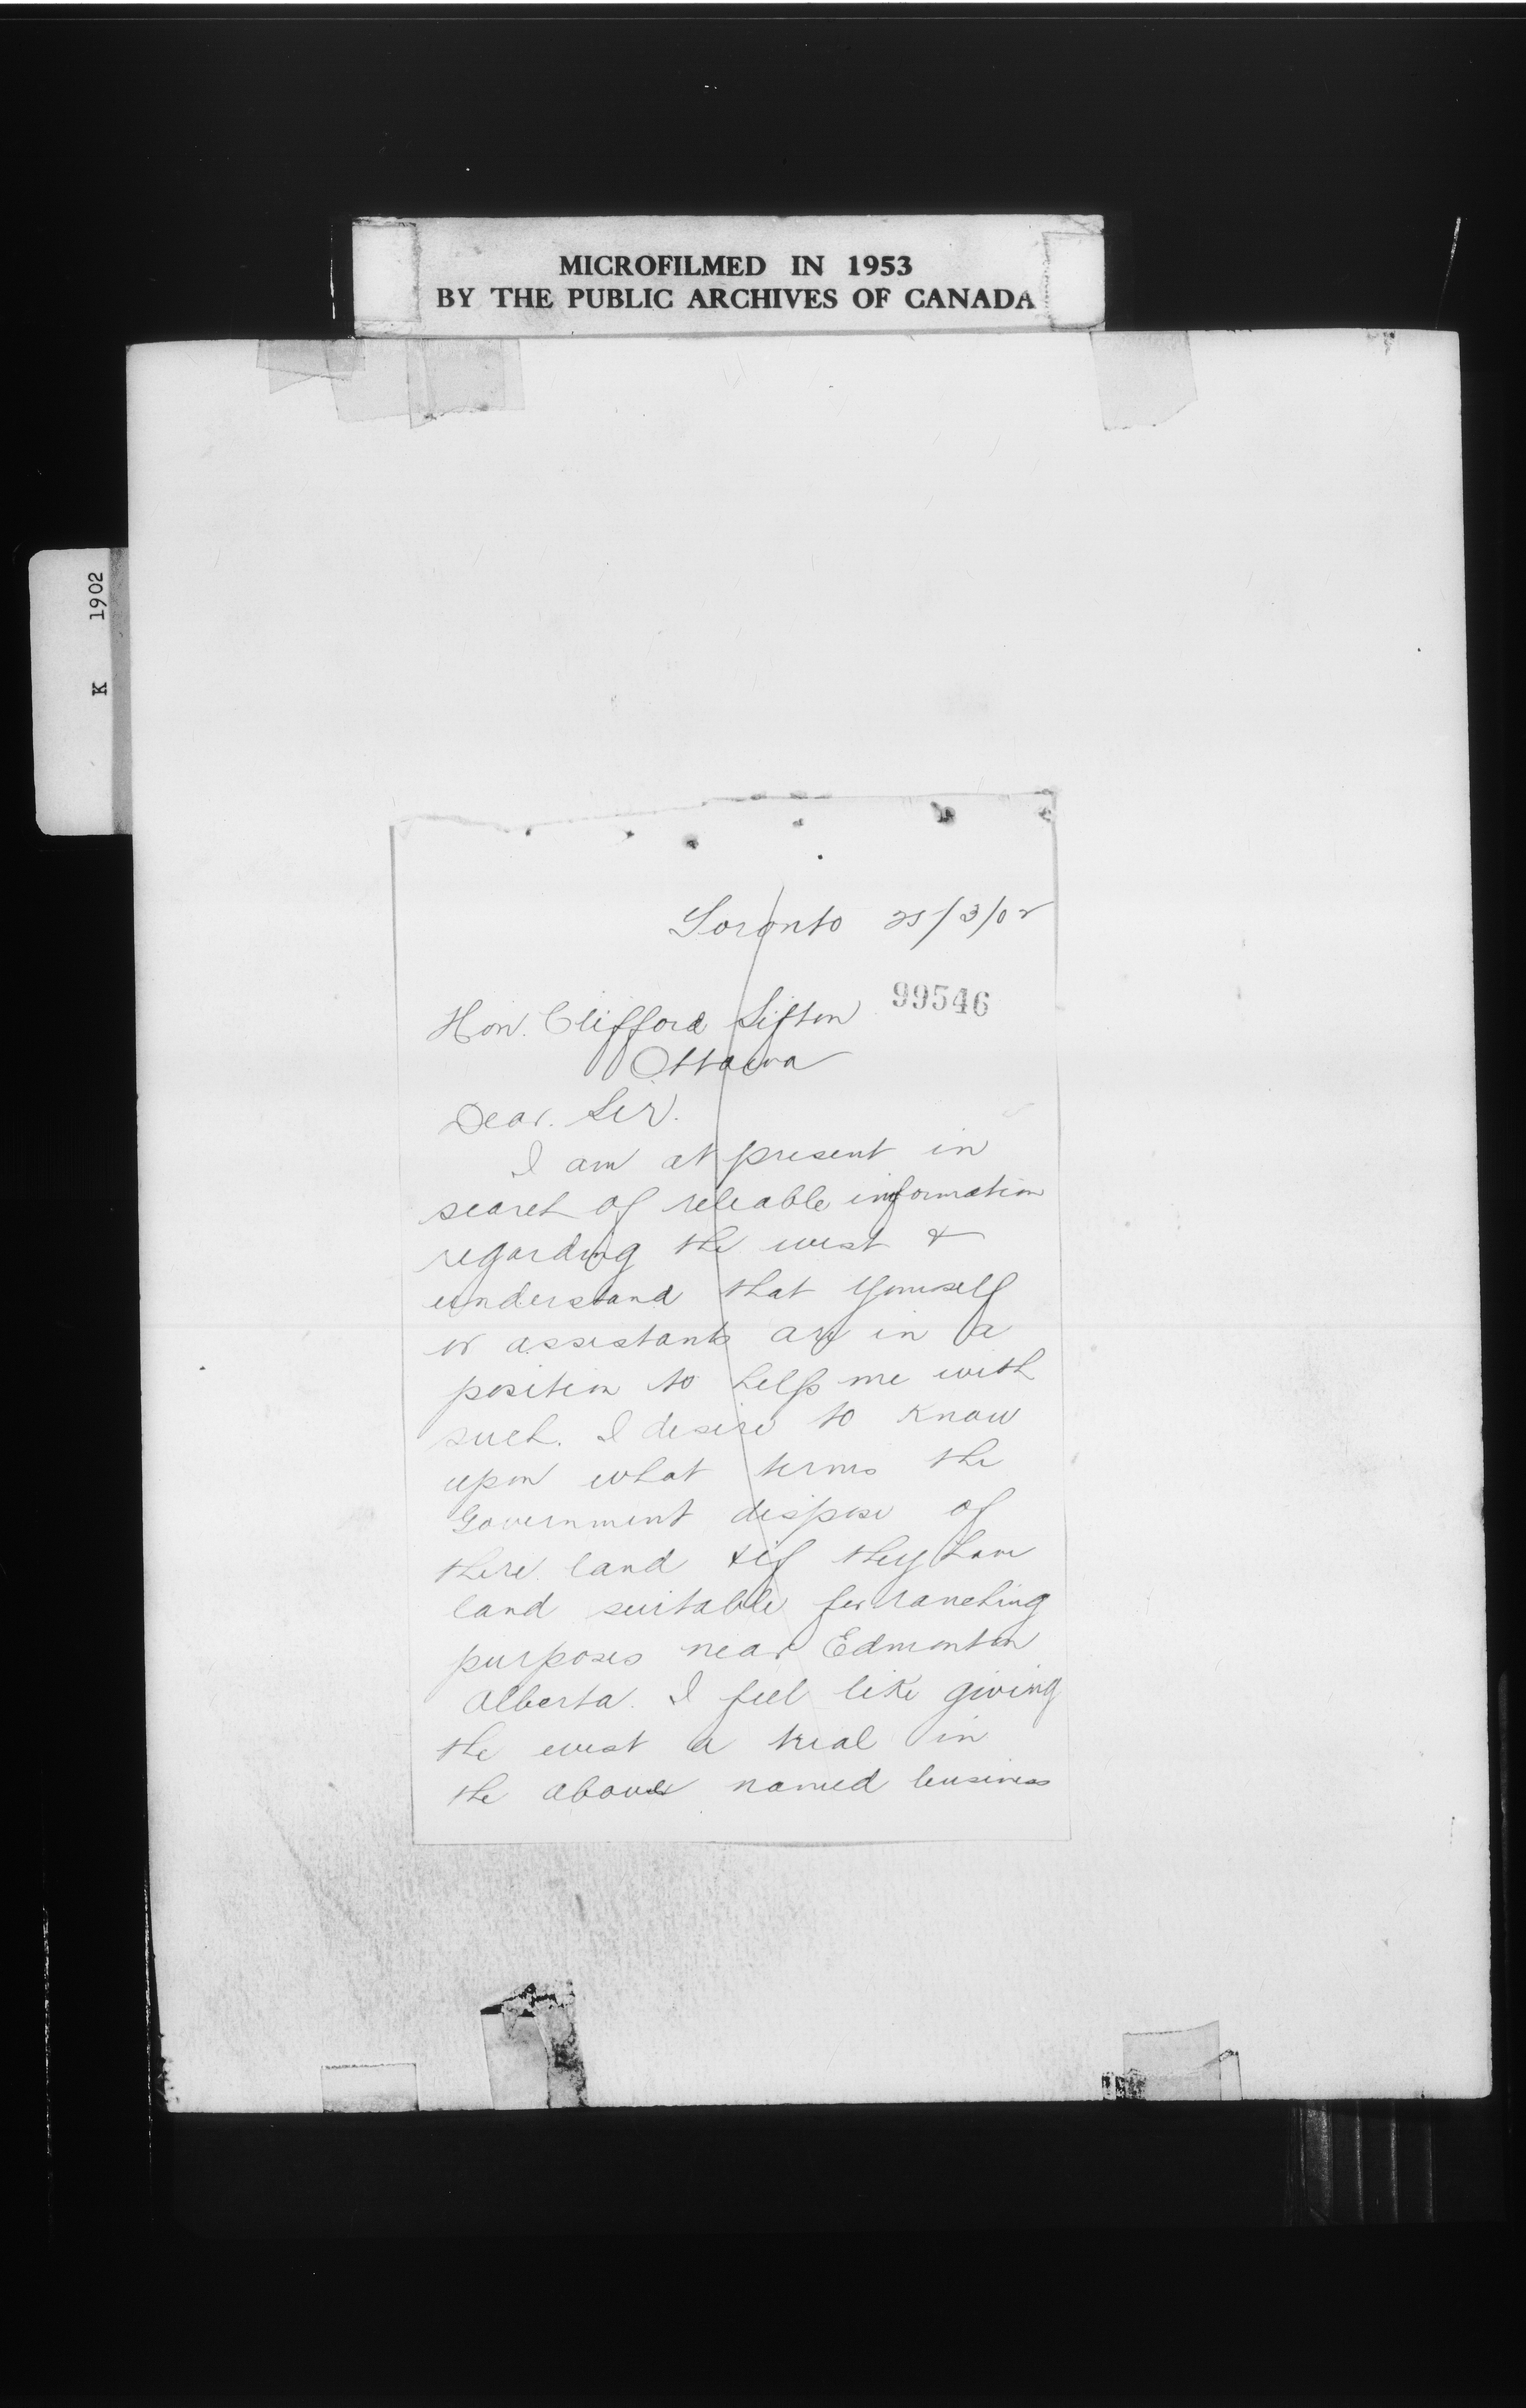 MICROFILMED IN 1953
BY THE PUBLIC ARCHIVES OF CANADA
K 1902
Toronto 25/3/02
99546
Hon. Clifford Sifton
Ottawa
Dear. Sir.
I am at present in
search of reliable information
regarding the west &
understand that yourself
or assistants are in a
position to help me with
such. I desire to know
upon what terms the
Government dispose of
there land & if they have
land suitable for ranching
purposes near Edmonton
Alberta. I feel like giving
the west a trial in
the above named business